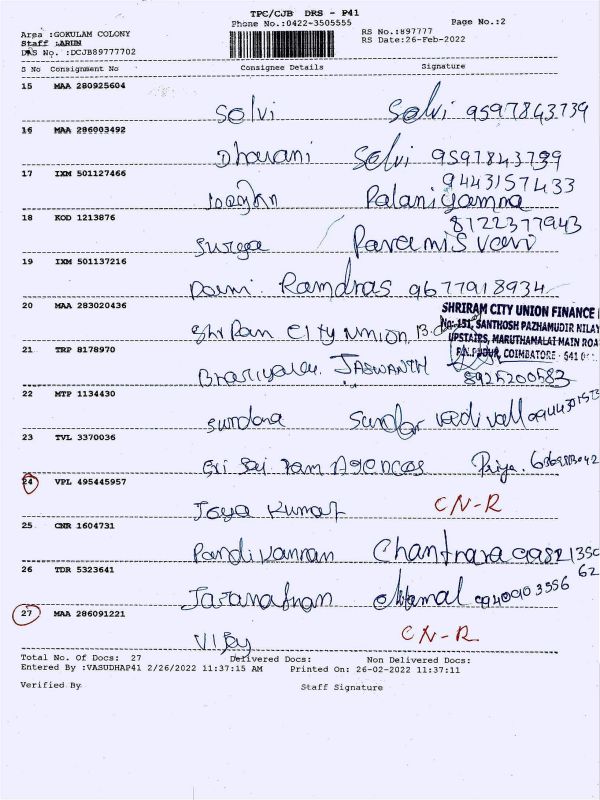 TPC/CJB DRS - P41
Phone No.:0422-3505555
Page No.:2
Area :GOKULAM COLONY
Staff :ARUN
DRS No. :DCJB89777702
RS No.:897777
RS Date:26-Feb-2022
S No Consignment No Consignee Details Signature
15 MAA 280925604
Selvi Selvi 9597843739
16 MAA 286003492
Dharani Selvi 9597843799
17 IXM 501127466
9443157433
Palaniyamma
18 KOD 1213876
8122377943
Surya
19 IXM 501137216
Ramdras 9677918934
20 MAA 283020436
Shri Ram City Union
SHRIRAM CITY UNION FINANCE
No: 151, SANTHOSH PAZHAMUDIR NILAY
UPSTAIRS, MARUTHAMALAI MAIN ROA
COIMBATORE - 641
21 TRP 8178970
JASWANTH
8925200583
22 MTP 1134430
Sundar
23 TVL 3370036
Sri Sai Ram Agences Priya.
24 VPL 495445957
Jaya Kumar CN-R
25 CNR 1604731
26 TDR 5323641
27 MAA 286091221
Vijay CN-R
Total No. Of Docs: 27 Delivered Docs: Non Delivered Docs:
Entered By :VASUDHAP41 2/26/2022 11:37:15 AM Printed On: 26-02-2022 11:37:11
Verified By Staff Signature